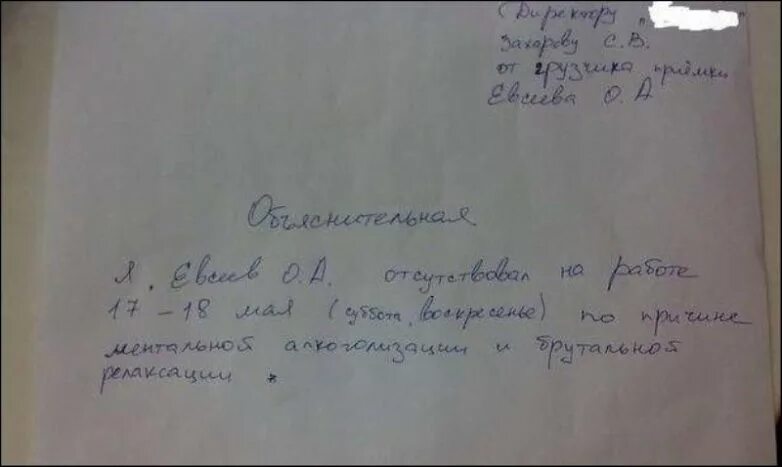 Директору "
Захарову С.В.
от грузчика приёмки
Евсеева О.А
Объяснительная
Я, Евсеев О.А. отсутствовал на работе
17-18 мая (суббота, воскресенье) по причине
ментальной алкоголизации и брутальной
релаксации.